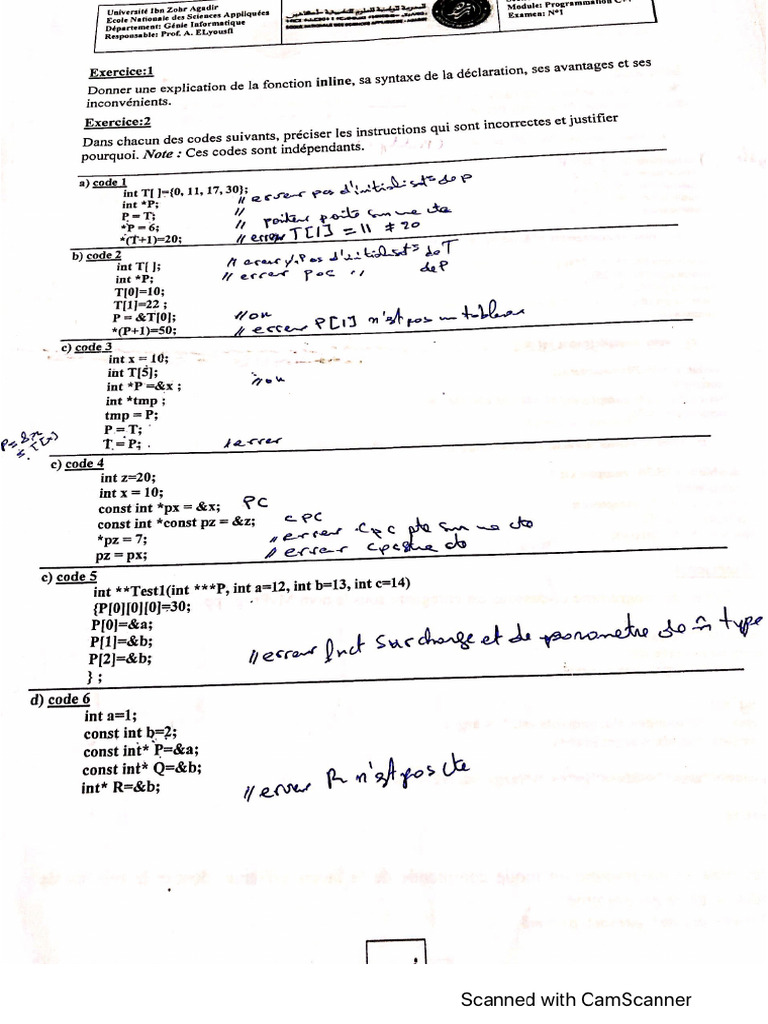 Université Ibn Zohr Agadir
Ecole Nationale des Sciences Appliquées
Département: Génie Informatique
Responsable: Prof. A. ELyousfi
Module: Programmation C++
Examen: N°1
Exercice:1
Donner une explication de la fonction inline, sa syntaxe de la déclaration, ses avantages et ses
inconvénients.
Exercice:2
Dans chacun des codes suivants, préciser les instructions qui sont incorrectes et justifier
pourquoi. Note : Ces codes sont indépendants.
a) code 1
int T[ ]={0, 11, 17, 30}; // erreur pas d'initialisat° de p
int *P; //
P = T; // pointe sur une cte
*P = 6;
*(T+1)=20; // erreur T[1] = 11 ≠ 20
b) code 2
int T[ ]; // pas d'initialisat° de T
int *P; // erreur de P
T[0]=10;
T[1]=22 ;
P = &T[0]; // ou
*(P+1)=50; // erreur P[1] n'est pas un tableau
c) code 3
int x = 10;
int T[5];
int *P =&x ; // ou
int *tmp ;
tmp = P;
P = T;
T = P; // erreur
c) code 4
int z=20;
int x = 10;
const int *px = &x; PC
const int *const pz = &z; CPC
*pz = 7; // erreur CPC pte sur une cte
pz = px; // erreur
e) code 5
int **Test1(int ***P, int a=12, int b=13, int c=14)
{P[0][0][0]=30;
P[0]=&a;
P[1]=&b;
P[2]=&b; // erreur fnct surcharge et de parametre de m̂ type
} ;
d) code 6
int a=1;
const int b=2;
const int* P=&a;
const int* Q=&b;
int* R=&b; // erreur R n'est pas cte
Scanned with CamScanner